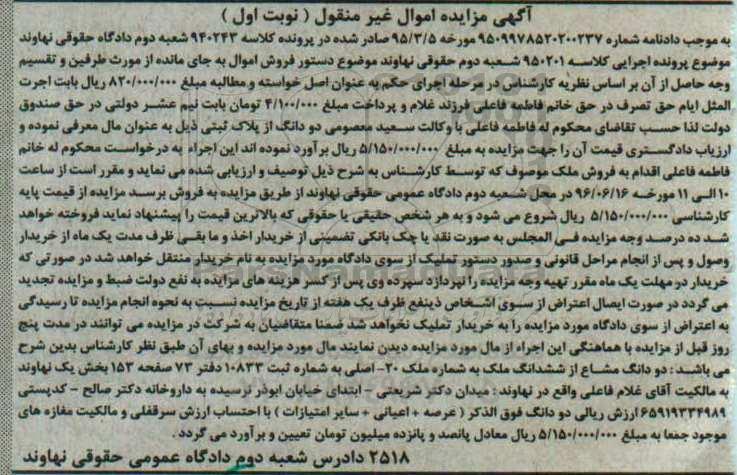 آگهی مزایده اموال غیر منقول ( نوبت اول )
به موجب دادنامه شماره ۹۵۰۹۹۷۸۵۲۰۲۰۰۲۳۷ مورخه ۹۵/۳/۵ صادر شده در پرونده کلاسه ۹۴۰۲۴۳ شعبه دوم دادگاه حقوقی نهاوند
موضوع پرونده اجرایی کلاسه ۹۵۰۲۰۱ شعبه دوم حقوقی نهاوند موضوع دستور فروش اموال به جای مانده از مورث طرفین و تقسیم
وجه حاصل از آن بر اساس نظریه کارشناس در مرحله اجرای حکم به عنوان اصل خواسته و مطالبه مبلغ ۸۲۰/۰۰۰/۰۰۰ ریال بابت اجرت
المثل ایام حق تصرف در حق خانم فاطمه فاعلی فرزند غلام و پرداخت مبلغ ۴/۱۰۰/۰۰۰ تومان بابت نیم عشر دولتی در حق صندوق
دولت لذا حسب تقاضای محکوم له فاطمه فاعلی با وکالت سعید معصومی دو دانگ از پلاک ثبتی ذیل به عنوان مال معرفی نموده و
ارزیاب دادگستری قیمت آن را جهت مزایده به مبلغ ۵/۱۵۰/۰۰۰/۰۰۰ ریال برآورد نموده اند این اجراء به درخواست محکوم له خانم
فاطمه فاعلی اقدام به فروش ملک موصوف که توسط کارشناس به شرح ذیل توصیف و ارزیابی شده می نماید و مقرر است از ساعت
۱۰ الی ۱۱ مورخه ۹۶/۰۶/۱۶ در محل شعبه دوم دادگاه عمومی حقوقی نهاوند از طریق مزایده به فروش برسد مزایده از قیمت پایه
کارشناسی ۵/۱۵۰/۰۰۰/۰۰۰ ریال شروع می شود و به هر شخص حقیقی یا حقوقی که بالاترین قیمت را پیشنهاد نماید فروخته خواهد
شد ده درصد وجه مزایده فی المجلس به صورت نقد یا چک بانکی تضمینی از خریدار اخذ و ما بقی ظرف مدت یک ماه از خریدار
وصول و پس از انجام مراحل قانونی و صدور دستور تملیک از سوی دادگاه مورد مزایده به نام خریدار منتقل خواهد شد در صورتی که
خریدار در مهلت یک ماه مقرر تهیه وجه مزایده را نپردازد سپرده وی پس از کسر هزینه های مزایده به نفع دولت ضبط و مزایده تجدید
می گردد در صورت ایصال اعتراض از سوی اشخاص ذینفع ظرف یک هفته از تاریخ مزایده نسبت به نحوه انجام مزایده تا رسیدگی
به اعتراض از سوی دادگاه مورد مزایده را به خریدار تملیک نخواهد شد ضمنا متقاضیان به شرکت در مزایده می توانند در مدت پنج
روز قبل از مزایده با هماهنگی این اجراء از مال مورد مزایده دیدن نمایند مال مورد مزایده و بهای آن طبق نظر کارشناس بدین شرح
می باشد : دو دانگ مشاع از ششدانگ ملک به شماره ملک ۲۰- اصلی به شماره ثبت ۱۰۸۳۳ دفتر ۷۳ صفحه ۱۵۳ بخش یک نهاوند
به مالکیت آقای غلام فاعلی واقع در نهاوند : میدان دکتر شریعتی - ابتدای خیابان ابوذر نرسیده به داروخانه دکتر صالح - کدپستی
۶۵۹۱۹۳۳۴۹۸۹ ارزش ریالی دو دانگ فوق الذکر ( عرصه + اعیانی + سایر امتیازات ) با احتساب ارزش سرقفلی و مالکیت مغازه های
موجود جمعا به مبلغ ۵/۱۵۰/۰۰۰/۰۰۰ ریال معادل پانصد و پانزده میلیون تومان تعیین و برآورد می گردد .
۲۵۱۸ دادرس شعبه دوم دادگاه عمومی حقوقی نهاوند
ParsNamadData